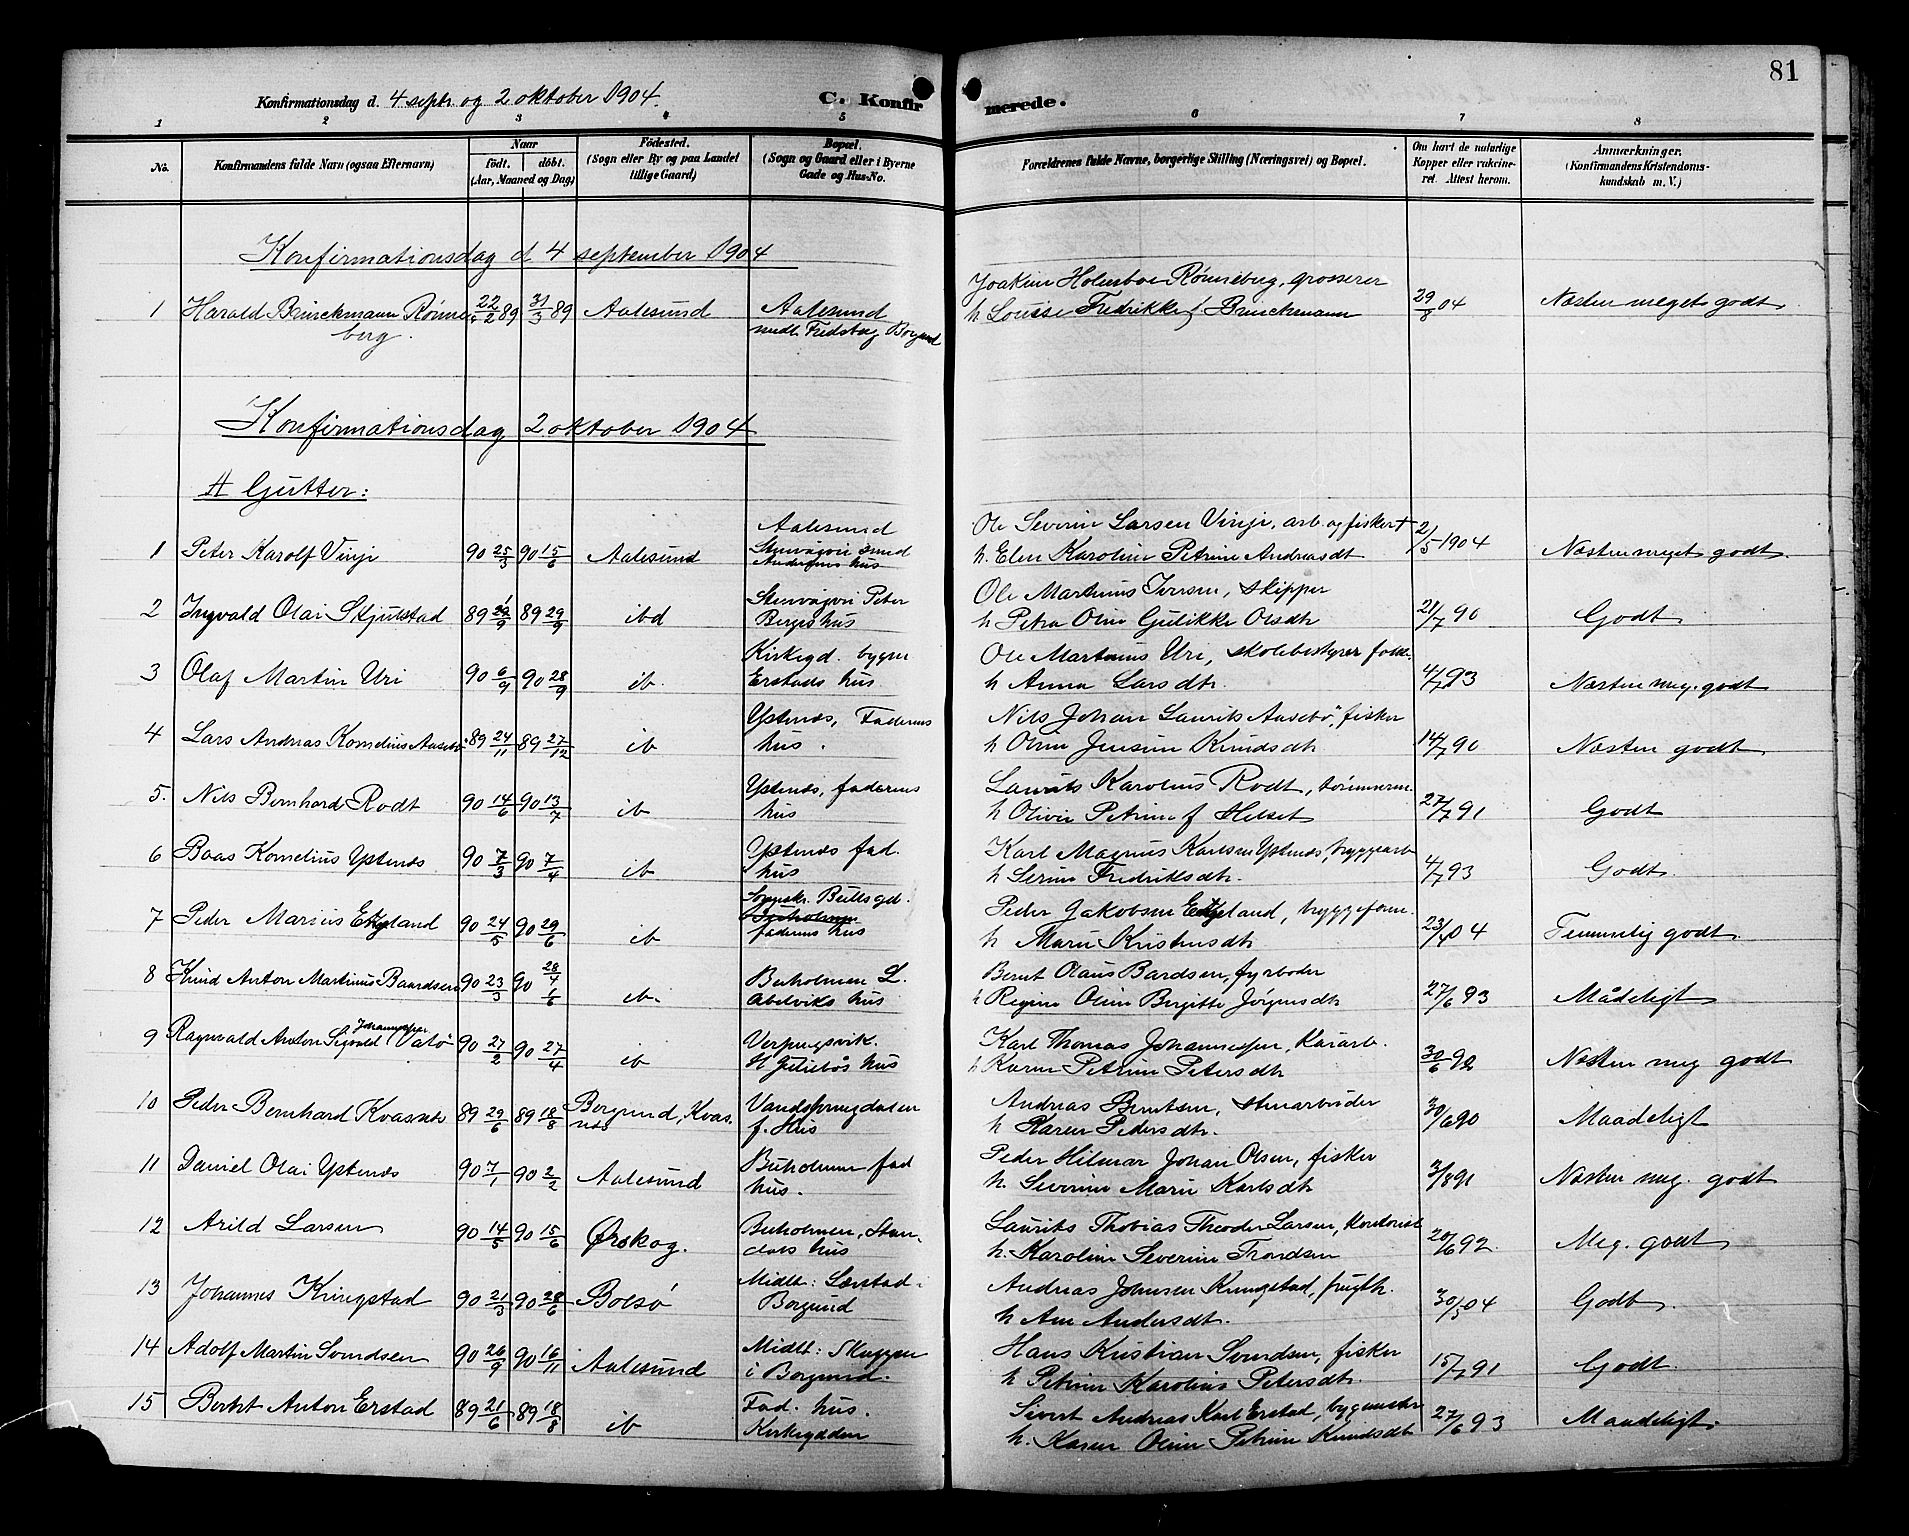 81
Konfirmationsdag d. 4 septr og 2 oktober 1904.
C. Konfirmerede.
1 2 3 4 5 6 7 8
No.
Konfirmandens fulde Navn (ogsaa Efternavn)
Naar
født. døbt.
(Aar, Maaned og Dag)
Fødested.
(Sogn eller By og paa Landet
tillige Gaard)
Bopæl.
(Sogn og Gaard eller i Byerne
Gade og Hus-No.
Forældrenes fulde Navne, borgerlige Stilling (Næringsvei) og Bopæl.
Om havt de naturlige
Kopper eller vakcine-
ret. Attest herom.
Anmærkninger.
(Konfirmandens Kristendoms-
kundskab m. V.)
Konfirmationsdag d 4 september 1904
1 Harald Brinckmann Rønne 22/2 89 31/3 89 Aalesund Aalesund Joakim Holmboe Rønneberg, grosserer 29/8 04 Næsten meget godt
berg. midt. Borgund h Louise Fredrikke f Brinckmann
Konfirmationsdag 2 oktober 1904
A Gutter:
1 Peter Karolf Vinje 90 25/3 90 15/6 Aalesund Aalesund Ole Severin Larsen Vinje, arb. og fisker 2/5 1904 Næsten meget godt.
hus h. Elen Karoline Petrine Andreasdt
2 Ingvald Olai Skjulstad 89 89 29/9 ibd Peter Ole Martinus Iversen, skipper 21/7 90 Godt
Berges hus h Petra Oline Gulikke Olsdtr
3 Olaf Martin Uri 90 6/9 90 28/9 ib. Kirkegd. bygm Ole Martinus Uri, skolebestyrer 4/7 93 Næsten meg. godt
Erstads hus h Anna Larsdtr.
4 Lars Andreas Kornelius Aasebø 89 24/11 89 27/12 ib Ystenes, Faderens Nils Johan Laurits Aasebø, fisker 14/7 90 Næsten godt
hus. h Oline Jensine Knudsdtr
5. Nils Bernhard Rodt 90 14/6 90 13/7 ib Ystenes, faderens Laurits Karolius Rodt, tømmerm. 27/7 91 Godt
hus h Olive Petrine f Helset
6 Baas Kornelius Ystenes 90 7/3 90 7/4 ib Ystenes fad. Karl Magnus Karlsen Ystenes, bryggearb 4/7 93 Godt.
hus h Serine Fredriksdtr.
7 Peder Marius 90 24/5 90 29/6 ib Bullsgd. Peder Jakobsen 23/4 04 Temmelig godt.
faderens hus h Marie Kristensdtr
8 Knud Anton Martinus Baardsen 90 23/3 90 28/4 6/6 ib. Buholmen L. Bernt Olaus Bardsen, fyrbøder 27/6 93 Mådeligt
Abelviks hus h Regine Oline Birgitte Jørgensdtr
9 Ragnvald Anton Sigvald Johannessen Vatø 90 27/2 90 27/4 ib Verpingsvik. Karl Thomas Johannessen, 30/6 90 Næsten meg godt
hus h Karen Petrine Petersdtr
10 Peder Bernhard Kvasnes 89 29/6 89 18/8 Borgund, Kvas- Andreas Berntsen, stenarbeider 30/6 90 Maadeligt
nes f. Hus h Karen Pedersdtr.
11 Daniel Olai Ystenes 90 7/1 90 2/2 Aalesund Buholmen fad Peder Hilmar Johan Olsen, fisker 3/8 91 Næsten meg. godt
hus. h. Severine Marie Karlsdtr
12 Arild Larsen 90 14/5 90 15/6 Ørskog. Buholmen, Stan- Laurits Thobias Theodor Larsen, Kontorist 20/6 92 Meg. godt
dals hus h. Karoline Severine Trondsen
13 Johannes Kringstad 90 21/3 90 28/6 Bolsø Midlt: Andreas Johnsen Kringstad, 30/5 04 Godt
Borgund h Ane Andersdtr.
14 Adolf Martin Svendsen 90 26/9 90 16/11 Aalesund Midlt: Hans Kristian Svendsen, fisker 15/7 91 Godt
i Borgund. h Petrine Karoline Petersdtr.
15 Bernt Anton Erstad 89 21/6 89 18/8 ib Fad. hus. Sivert Andreas Karl Erstad, bygmester 27/6 93 Maadeligt.
Kirkegaden h. Karen Oline Petrine Knudsdtr